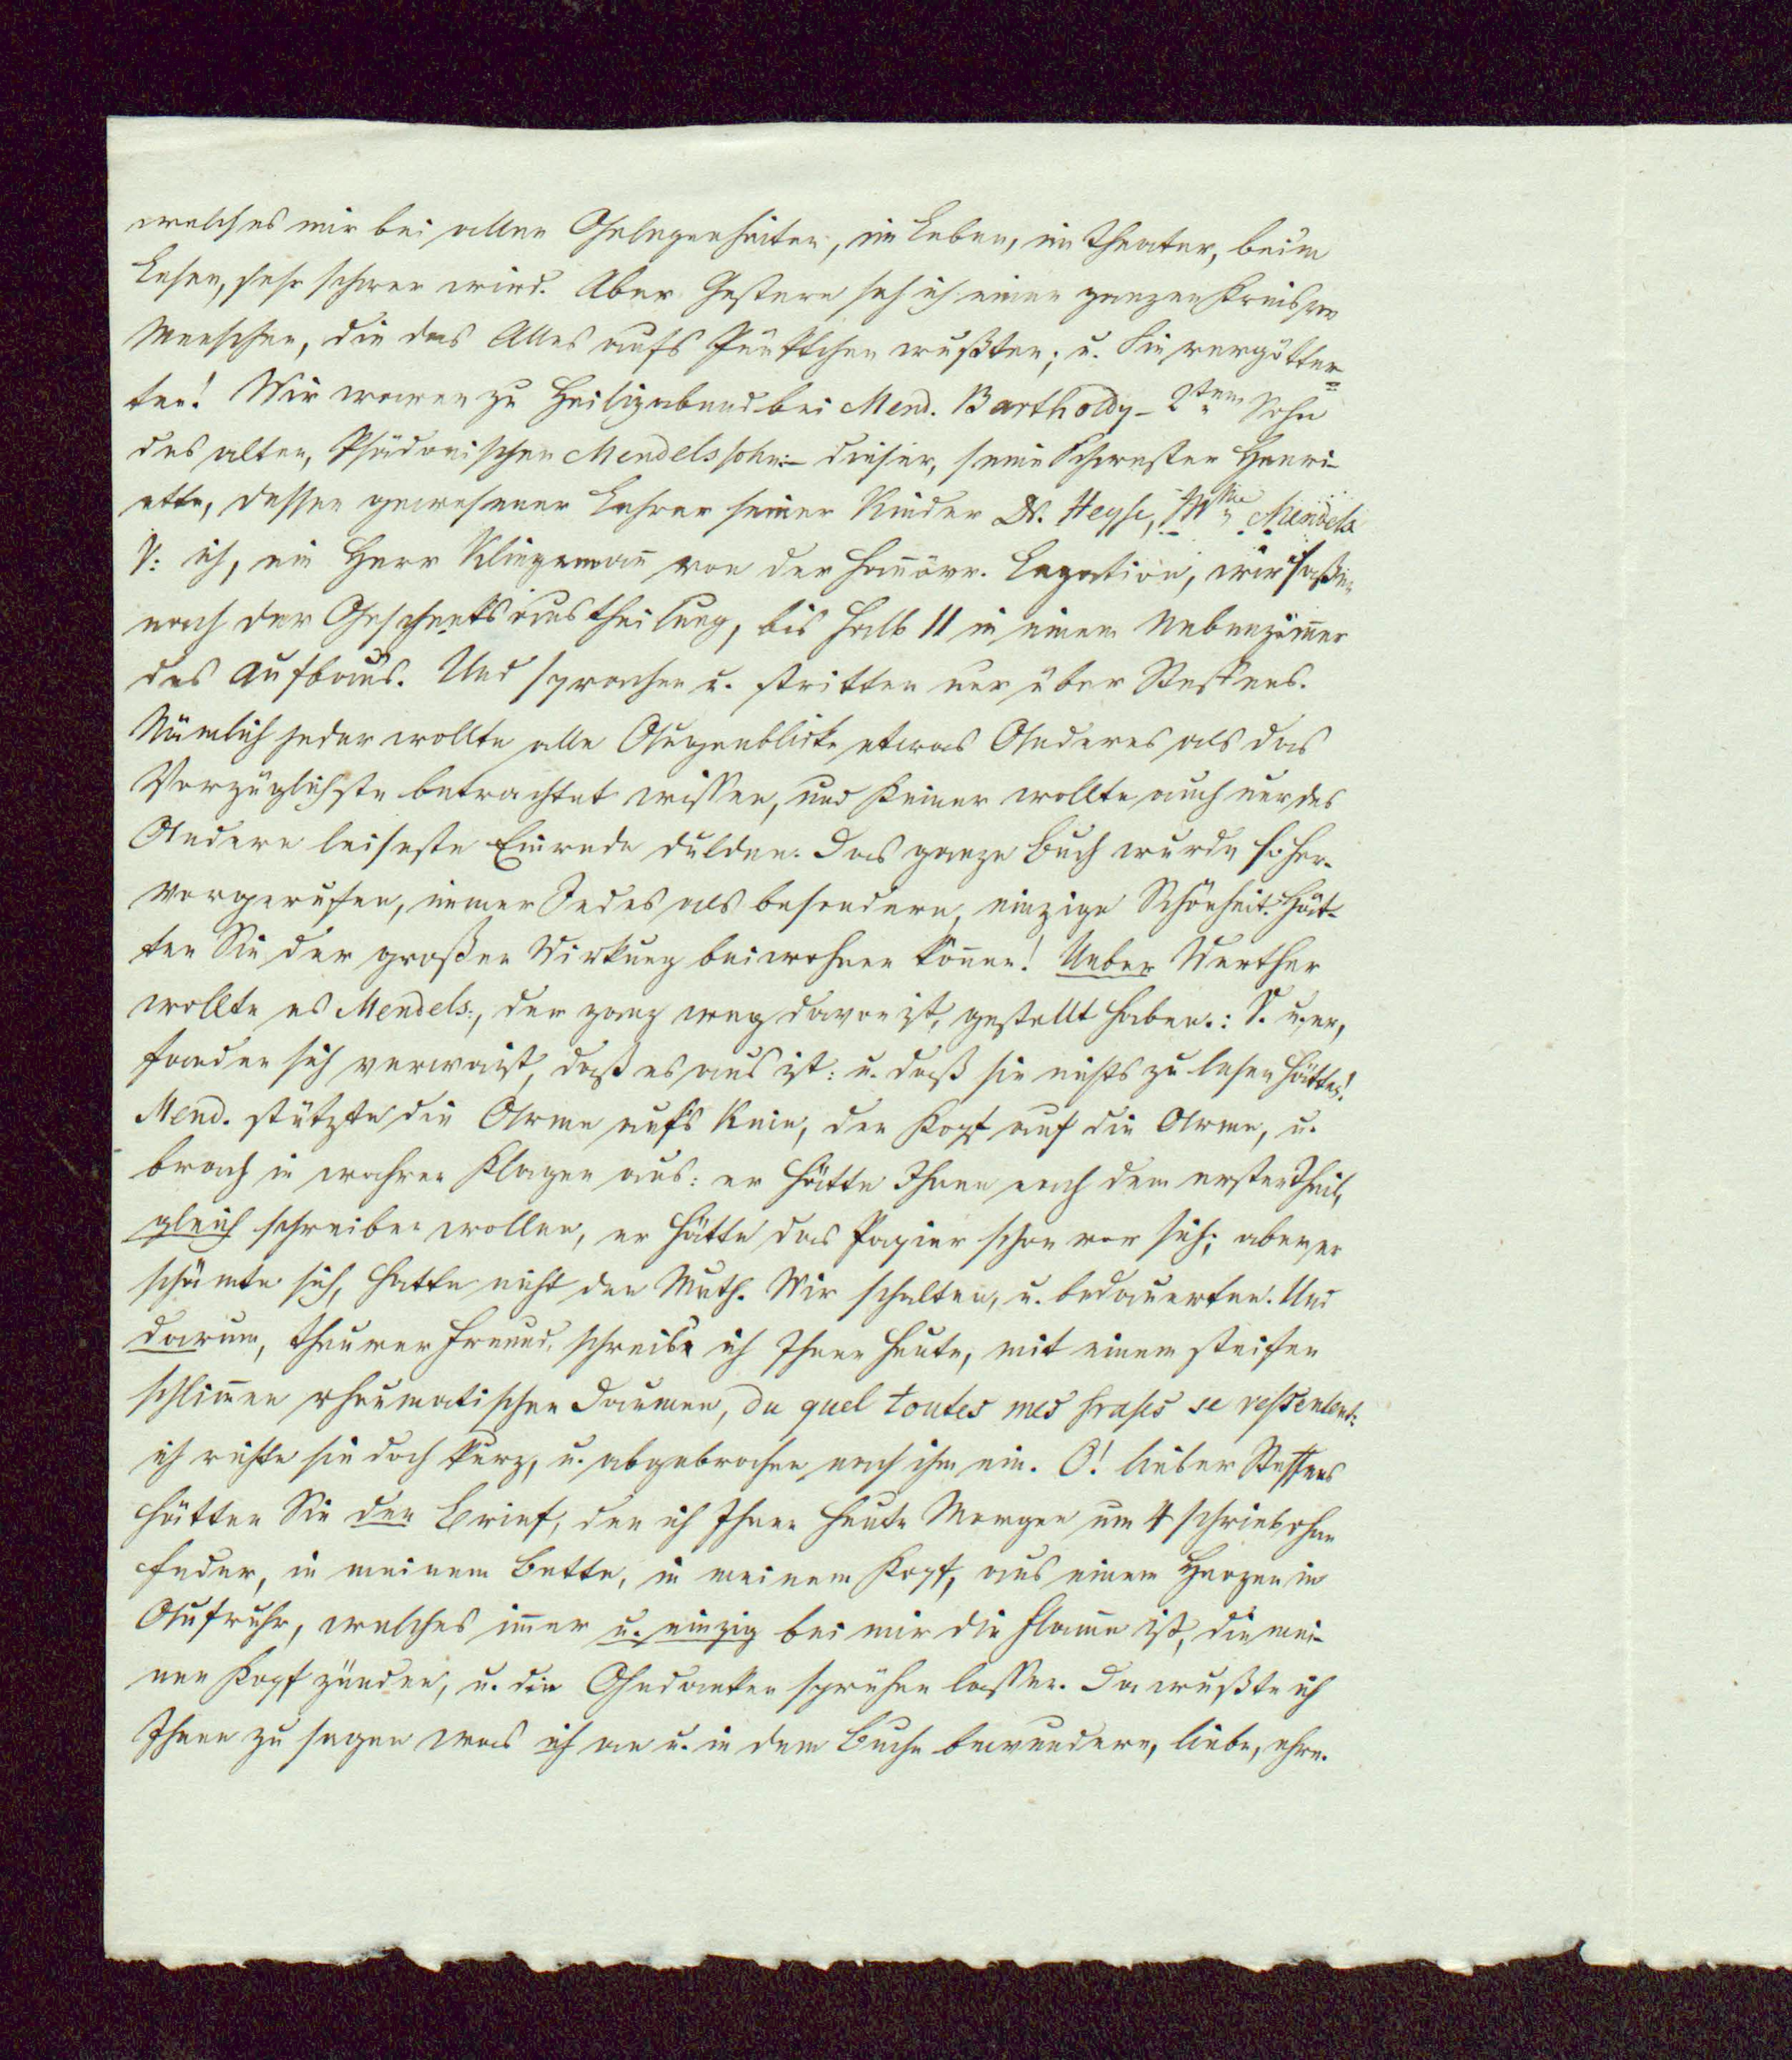 welches mir bei allen Gelegenheiten, im Leben, im Theater, beim
Lesen, sehr schwer wird. Aber Gestern sah ich einen ganzen Kreis von
Menschen, die das Alles aufs Pünktchen wußten; u. Sie vergötter=
ten! Wir waren zu Heiligabend bei Mend. Bartholdy – 2tem Sohn
des alten, Phädonischen Mendelssohn:– dieser, seine Schwester Henri-
ette, dessen gewesener Lehrer seiner Kinder Dr. Heyse, Mme Mendels
V: ich, ein Herr Klingeman̄ von der han̄övr. Legation, wir saßen
nach der Geschenksaustheilung, bis halb 11 in einem Nebenzim̄er
des Aufbaus. Und sprachen u. stritten nur über Steffens.
Nämlich jeder wollte alle Augenblicke etwas Anderes als das
Vorzüglichste betrachtet wissen, und keiner wollte auch nur des
Andern leiseste Einrede dulden. Das ganze Buch wurde so her-
vorgerufen, immer Jedes als besondere, einzige Schönheit. Hät-
ten Sie der großen Wirkung beiwohnen kön̄en! Ueber Werther
wollte es Mendels:, der ganz weg davon ist, gestellt haben.: V. u. er,
fanden sich verwaist, daß es aus ist: u. daß sie nichts zu lesen hätten!
Mend. stützte die Arme aufs Knie, den Kopf auf die Arme, u.
brach in wahren Klagen aus: er hätte Ihnen nach dem ersten Theil,
gleich schreiben wollen, er hätte das Papier schon vor sich; aber er
schämte sich, hatte nicht den Muth. Wir schalten, u. bedauerten. Und
darum, theurer Freund, schreibe ich Ihnen heute, mit einem steifen
schlim̄en rheumatischen Daumen, du quel toutes mes frases se ressentent:
ich richte sie doch kurz, u. abgebrochen nach ihm ein. O! lieber Steffens
hätten Sie den Brief, den ich Ihnen heute Morgen um 4 schrieb ohne
Feder, in meinem Bette, in meinem Kopf, aus einem Herzen in
Aufruhr, welches im̄er u. einzig bei mir die Flam̄e ist, die mei-
nen Kopf zünden, u. die Gedanken sprühen lassen. Da wußte ich
Ihnen zu sagen was ich an u. in dem Buche bewundere, liebe, ehre.